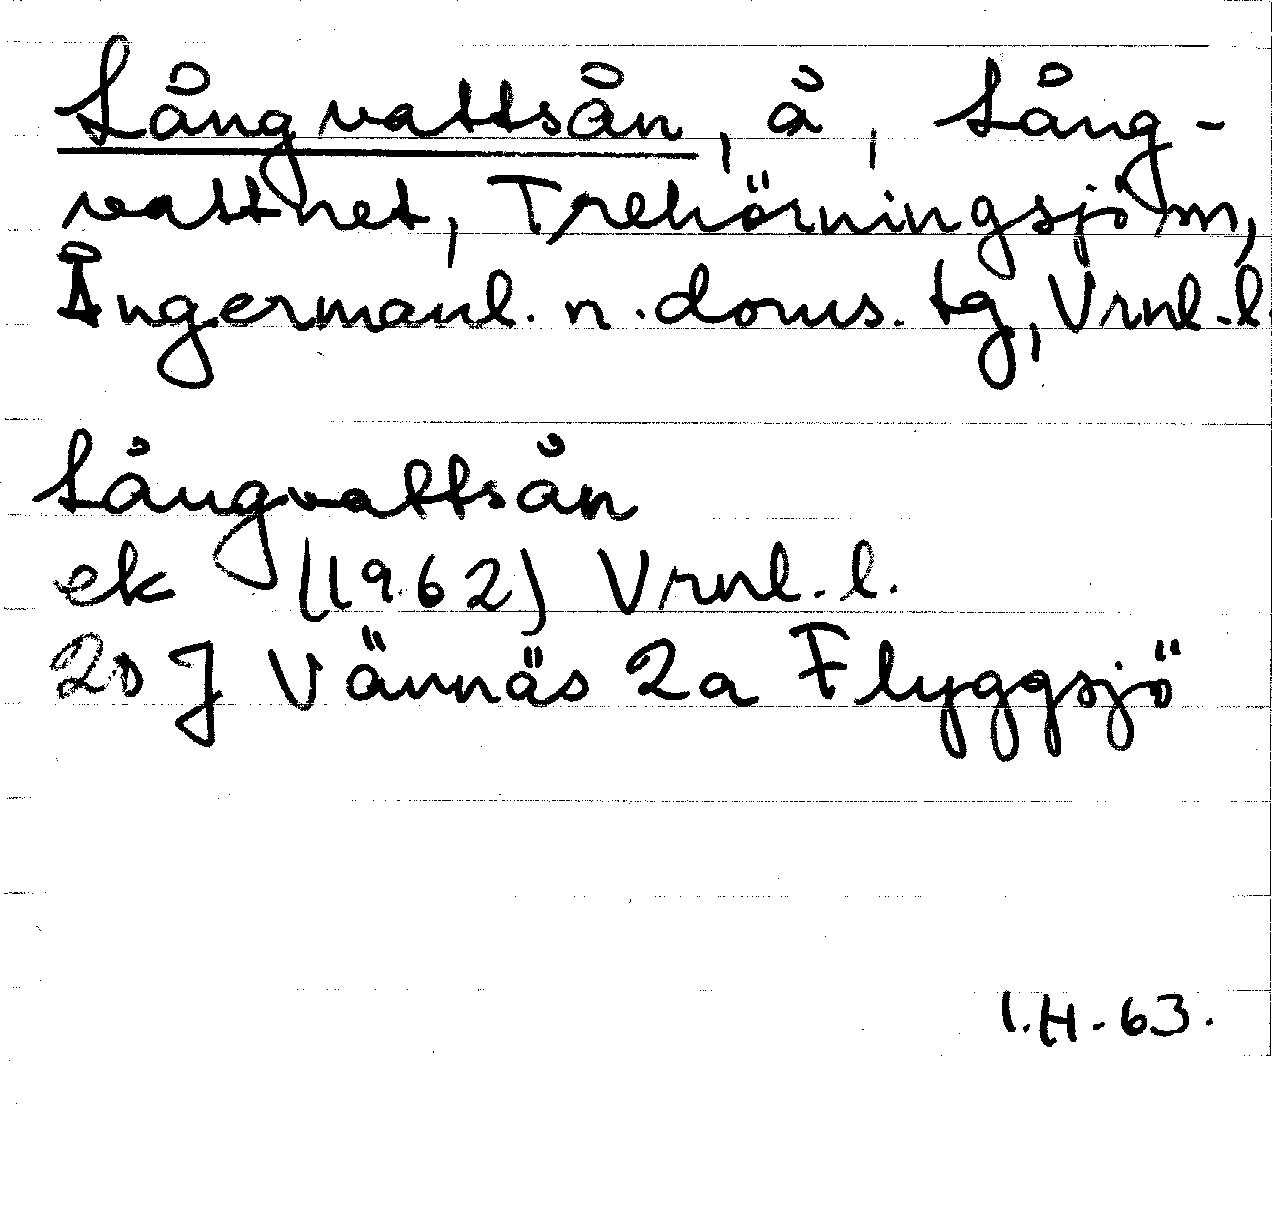 Långvattsån, å, Lång-
vattnet, Trehörningsjö sn,
Ångermanl. n. doms. tg, Vrnl. l.
Långvattsån
ek (1962) Vrnl. l.
20 J Vännäs 2a Flyggsjö
I.H-63.